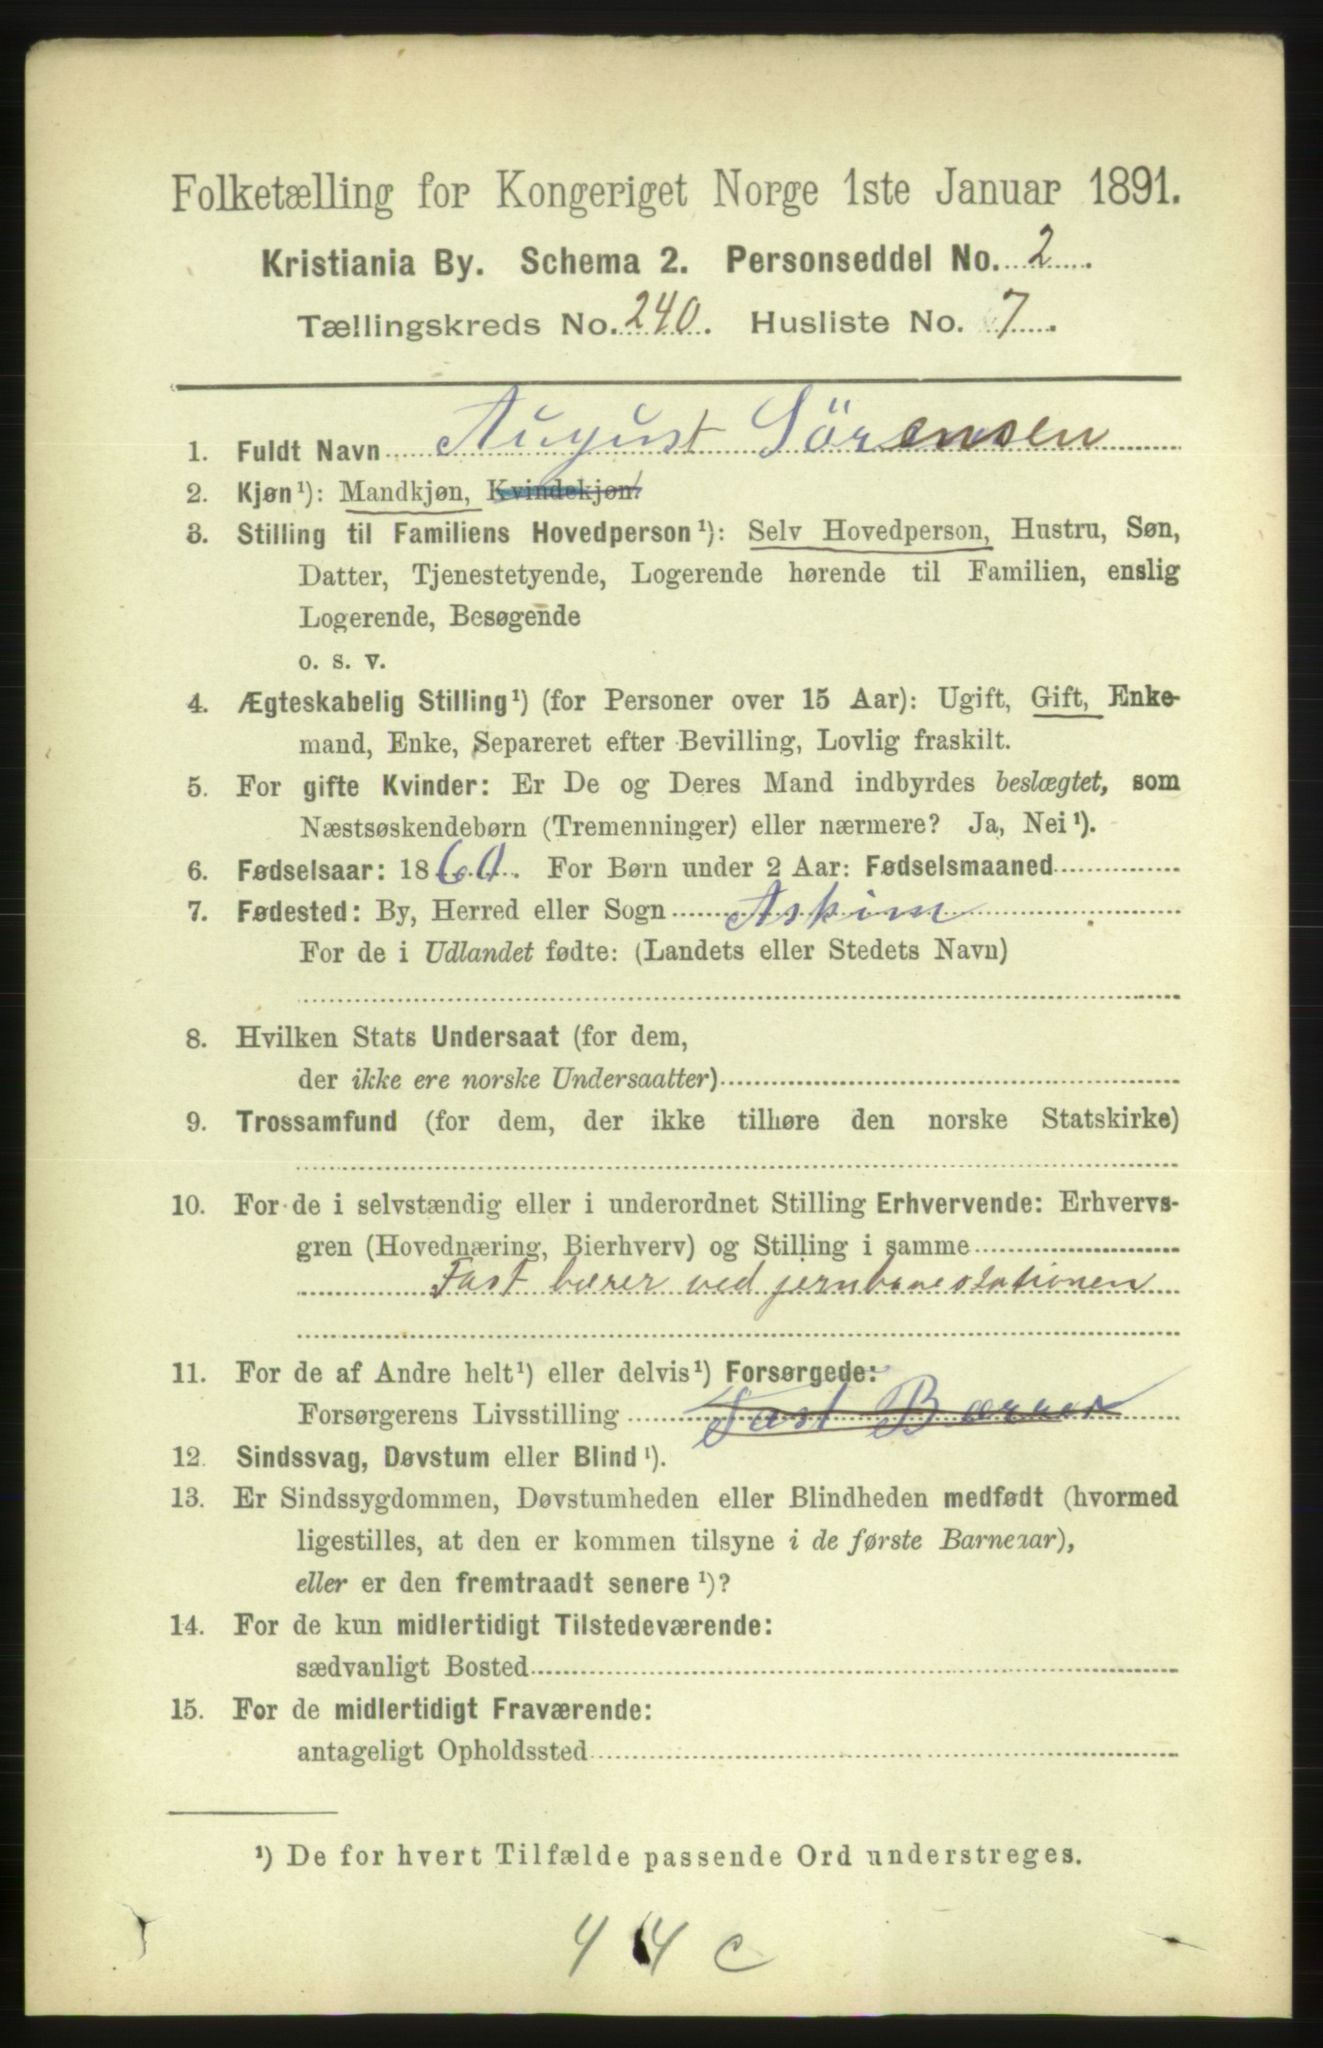 Folketælling for Kongeriget Norge 1ste Januar 1891.
Kristiania By. Schema 2. Personseddel No. 2.
Tællingskreds No. 240. Husliste No. 7.
1. Fuldt Navn August Sörensen
2. Kjøn¹): Mandkjøn, Kvindekjøn.
3. Stilling til Familiens Hovedperson¹): Selv Hovedperson, Hustru, Søn,
Datter, Tjenestetyende, Logerende hørende til Familien, enslig
Logerende, Besøgende
o. s. v.
4. Ægteskabelig Stilling¹) (for Personer over 15 Aar): Ugift, Gift, Enke-
mand, Enke, Separeret efter Bevilling, Lovlig fraskilt.
5. For gifte Kvinder: Er De og Deres Mand indbyrdes beslægtet, som
Næstsøskendebørn (Tremenninger) eller nærmere? Ja, Nei¹).
6. Fødselsaar: 1860. For Børn under 2 Aar: Fødselsmaaned
7. Fødested: By, Herred eller Sogn Askim
For de i Udlandet fødte: (Landets eller Stedets Navn)
8. Hvilken Stats Undersaat (for dem,
der ikke ere norske Undersaatter)
9. Trossamfund (for dem, der ikke tilhøre den norske Statskirke)
10. For de i selvstændig eller i underordnet Stilling Erhvervende: Erhvervs-
gren (Hovednæring, Bierhverv) og Stilling i samme
Fast bærer ved jernbanestationen
11. For de af Andre helt¹) eller delvis¹) Forsørgede:
Forsørgerens Livsstilling Fast Bærer
12. Sindssvag, Døvstum eller Blind¹).
13. Er Sindssygdommen, Døvstumheden eller Blindheden medfødt (hvormed
ligestilles, at den er kommen tilsyne i de første Barneaar),
eller er den fremtraadt senere¹)?
14. For de kun midlertidigt Tilstedeværende:
sædvanligt Bosted
15. For de midlertidigt Fraværende:
antageligt Opholdssted
¹) De for hvert Tilfælde passende Ord understreges.
44 c